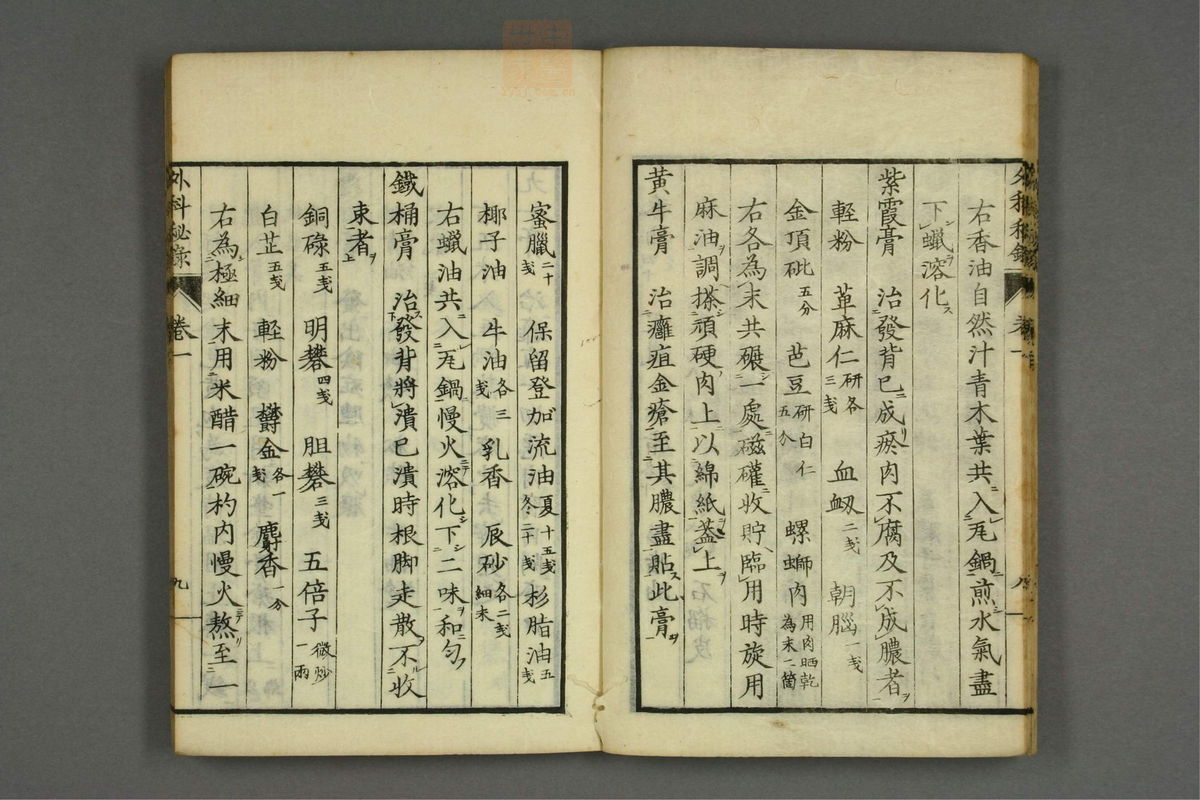 右香油自然汁青木葉共入瓦鍋煎水氣盡
下蠟溶化
紫霞膏 治發背已成瘀肉不腐及不成膿者
輕粉 萆麻仁研各三戔 血蚴二戔 朝腦一戔
金頂砒五分 芭豆研白仁五分 螺螄肉用肉晒乾為末二箇
右各為末共碾一處磁罐收貯臨用時旋用
麻油調搽頑硬肉上以綿紙蓋上
黄牛膏 治癰疽金瘡至其膿盡貼此膏
外科秘錄 卷一 八
蜜臘二十戔 保留登加流油夏十五戔冬二十戔 杉脂油五戔
椰子油 牛油各三戔 乳香 辰砂各二戔細末
右蠟油共入瓦鍋慢火溶化下二味和匀
鐵桶膏 治發背將潰已潰時根脚走散不收
束者
銅碌五戔 明礬四戔 胆礬三戔 五倍子微炒一兩
白芷五戔 軽粉 欝金各一戔 麝香一分
右為極細末用米醋一碗杓内慢火熬至一
外科秘录 卷一 九